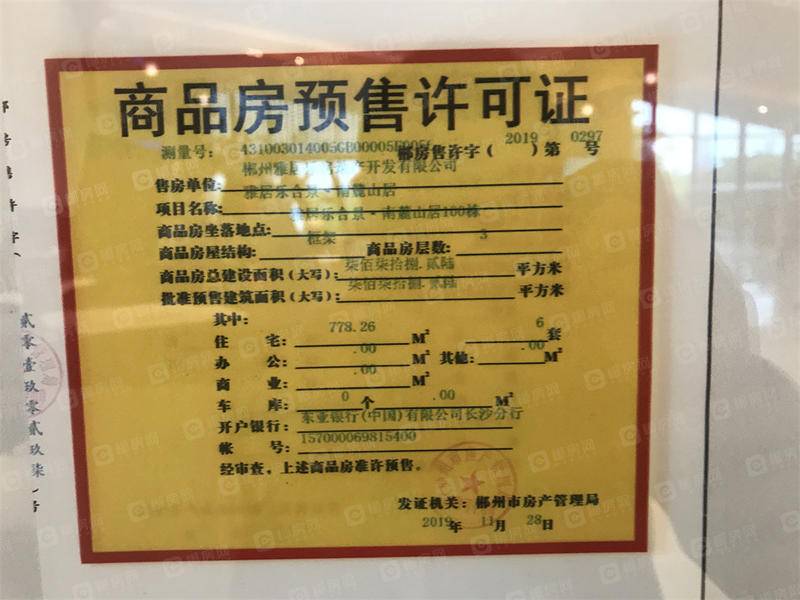 商品房预售许可证
测量号： 431003014005GB00005F0 郴房售许字（2019）第0297号
售房单位： 郴州雅居乐房地产开发有限公司
项目名称： 雅居乐合景-南麓山居
商品房坐落地点： 雅居乐合景-南麓山居100栋
商品房屋结构： 框架 商品房层数： 3
商品房总建设面积（大写）： 柒佰柒拾捌.贰陆 平方米
批准预售建筑面积（大写）： 柒佰柒拾捌.贰陆 平方米
其中：
住 宅： 778.26 M² 6 套
办 公： .00 M² 其他： .00 M²
商 业： .00 M²
车 库： 0 个 .00 M²
开户银行： 东亚银行(中国)有限公司长沙分行
帐 号： 157000069815400
经审查，上述商品房准许预售。
发证机关：郴州市房产管理局
2019年 11月 28日
郴房售许字（
贰零壹玖零贰玖柒
号
郴房网